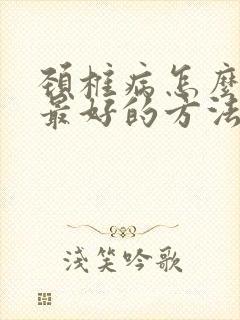 頸椎病怎麼
最好的方法
淺笑吟歌